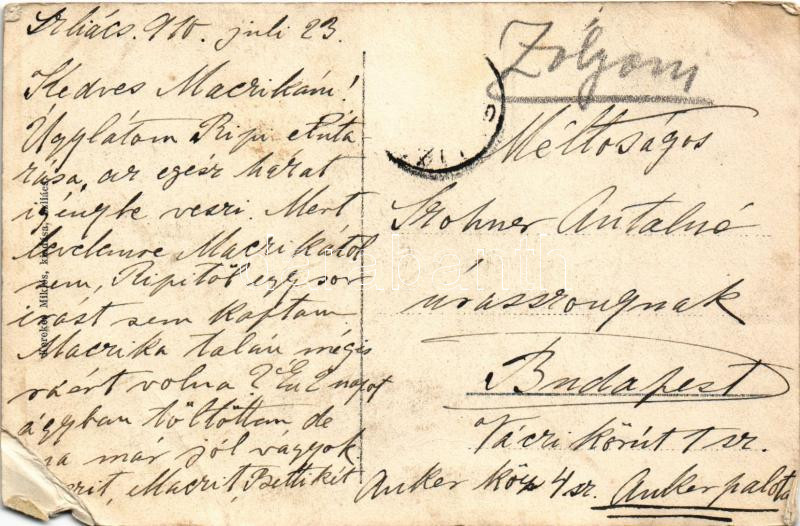 Szliács. 910. juli 23.
Kedves Macrikám!
Úgylátom Ripi elutazása, az egész házat
igénybe veszi. Mert
levelemre Macrikától
sem, Ripitől egy sor
írást sem kaptam
Macrika talán mégis
ráért volna? Én 2 napot
ágyban töltöttem, de
ma már jól vagyok
Macrit, Bettikét
Kerekes Miklós, kiadása, Szliács
Zólyom
Méltóságos
Antalné
úrasszonynak
Budapest
Váczi körút 1 sz.
Anker köz 4 sz. Anker palota